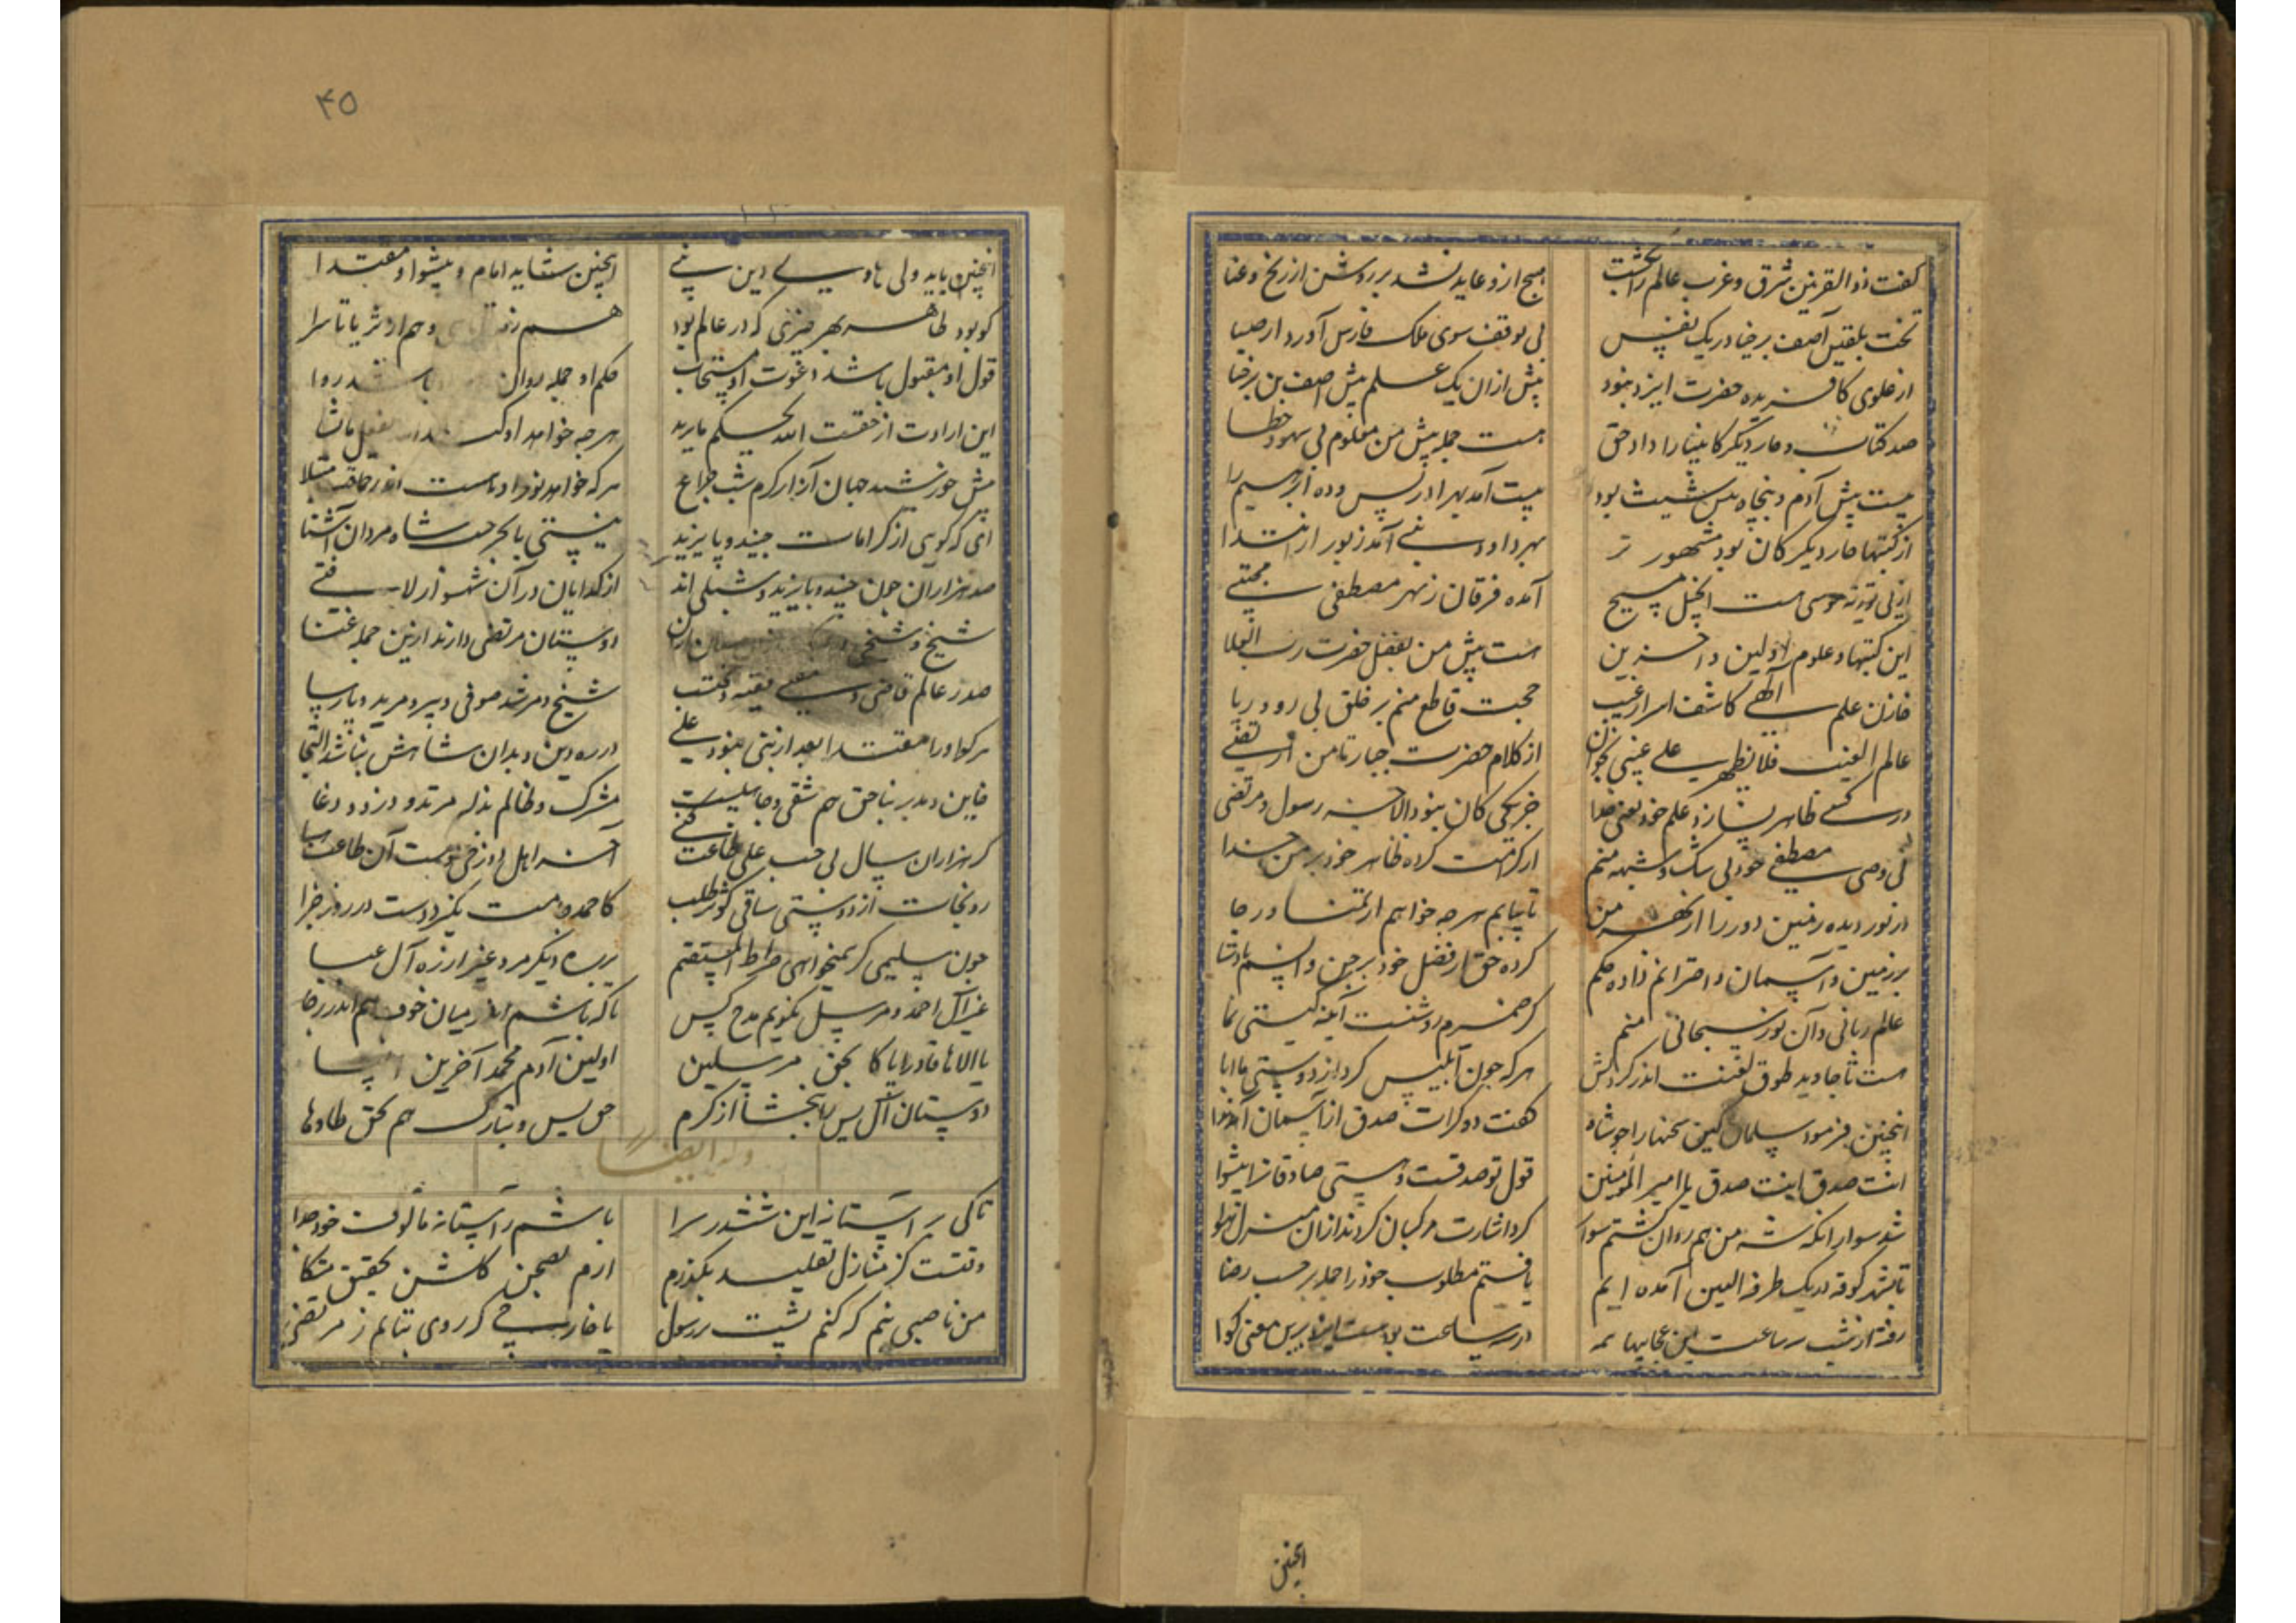 گفت ذوالقرنین شرق و غرب عالم را بگشت
هیچ ازو عاید نشد بر روشن از رنج و عنا
تخت بلقیس آصف برخیا در یک نفس
بی توقف سوی ملک فارس آورد از صبا
از علوی کافریده حضرت ایزد نبود
پیش ازان یک علم پیش آصف بن برخیا
صد کتاب و چار دیگر کانبیا را داد حق
هست جمله پیش من معلوم بی سهو و خطا
بیست پیش آدم و پنجاه پس شیث بود
بیست آمد بهر ادریس و ده ابرهیم را
از کتبها چار دیگر کان بود مشهور تر
بهر داود نبی آمد زبور از ابتدا
از پی توریة موسی است انجیل مسیح
آمده فرقان ز بهر مصطفی مجتبی
این کتبها و علوم اولین و آخرین
هست پیش من بفضل حضرت رب العلا
خازن علم الهی کاشف اسرار غیب
حجت قاطع منم بر خلق بی رو و ریا
عالم الغیب فلا یظهر علی غیبی بخوان
از کلام حضرت جبار تا من ارتضی
در کسی ظاهر نسازد علم خود یعنی خدا
جز یکی کان نبود الا رسول و مرتضی
بی وصی مصطفی خود بی شک و شبهه منم
از کرامت کرده ظاهر خود بر من خدا
کرده حق از فضل خود بر جن و انسم پادشا
بر زمین و آسمان و اخترانم داده حکم
عالم ربانی و آن نور سبحانی منم
کز ضمیرم روشنست آینه گیتی نما
هست تا جاوید طوق لعنت اندر گردنش
هر که چون ابلیس کرد از دوستی ما ابا
اینچنین فرمود سلمان کین سخنها را چو شاه
گفت دو کرات صدق از آسمان آمد ندا
انت صدق انت صدق یا امیر المؤمنین
قول تو صدقست و هستی صادقانرا پیشوا
شد سوار انکه شه من هم روان گشتم سوار
کرد اشارت مرکبان کردند ازان منزل
تا بشهر کوفه در یک طرفة العین آمده ایم
یافتم مطلوب خود را جمله بر حسب رضا
رفته از شب سه ساعت این عجایبها همه
در سه ساعت بود هست ایزد برین معنی گوا
اینچنین
۴۵
اینچنین باید ولی هادی دین نبی
اینچنین شاید امام و پیشوا و مقتدا
کو بود ظاهر بهر چیزی که در عالم بود
هم ز و هم از ثریا تا سرا
قول او مقبول باشد دعوت او مستجاب
حکم او جمله روان باشد روا
این ارادت از حقست الله یحکم ما یرید
هر چه خواهد او کند یفعل ما یشا
مثل خورشید جهان آرا و کرم شب چراغ
هر که خواهد نور او
ای که گویی از کرامات جنید و بایزید
نیستی با بحر حب شاه مردان آشنا
صد هزاران چون جنید و بایزید و شبلی اند
از گدایان در آن شهسوار لافتی
شیخ و شیخی
دوستان مرتضی دارند ازین جمله غنا
صدر عالم قاضی و مفتی فقیه و محتسب
شیخ و مرشد صوفی و پیر و مرید و پارسا
هر که او را مقتدا بعد از نبی نبود علی
در ره دین و بدان شاهش نباشد التجا
خاین و مدبر بناحق هم شقی و جاهلیست
مشرک و ظالم بذله مرتد و دزد و دغا
گر هزاران سال بی حب علی طاعت کنی
رو نجات از دوستی ساقی کوثر طلب
کاحمدت نگیرد دست در روز جزا
چون سلیمی گر نمیخواهی صراط المستقیم
بر ره دیگر مرو غیر از ره آل عبا
غیر آل احمد مرسل نگویم مدح کس
تا که باشم در میان خوف هم اندر رجا
یا الاها قادرا پاکا بحق مرسلین
اولین آدم محمد آخرین انبیا
دوستان آل یس را ببخشا از کرم
حق یس و تبارک هم بحق طا و ها
وله ایضا
تا کی بر آستانه این ششدر سرا
باشم ز آستانه مالوف خود جدا
وقتست کز منازل تقلید بگذرم
ارم بصحن گلشن تحقیق متکا
من ناصبی نیم که کنم پشت بر رسول
یا خارجی که روی بتابم ز مرتضی